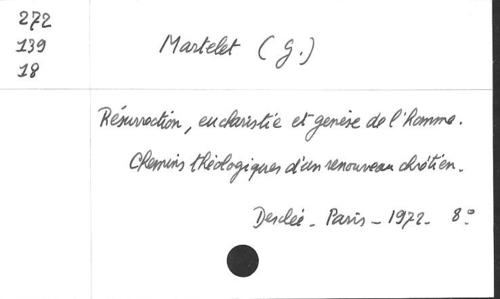 272
139
18
Martelet (G.)
Résurrection, eucharistie et genèse de l'homme.
Chemins théologiques d'un renouveau chrétien.
Desclée - Paris - 1972 - 8°